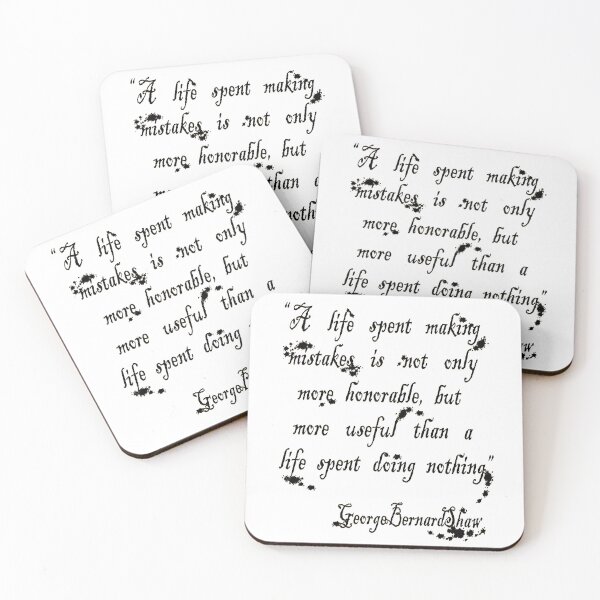 “A life spent making
mistakes is not only
more honorable, but
than a
“A life spent making
mistakes is not only
more honorable, but
more useful than a
life spent doing nothing”
“A life spent making
mistakes is not only
more honorable, but
more useful than a
life spent doing
“A life spent making
mistakes is not only
more honorable, but
more useful than a
life spent doing nothing”
GeorgeBernardShaw